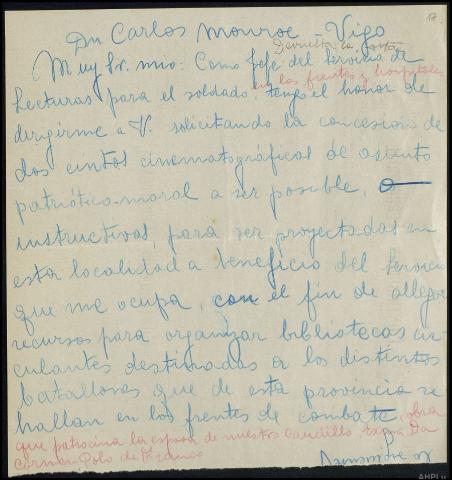 17
Dn Carlos Monroe - Vigo
Devuelta la carta
Muy Sr. mio: Como Jefe del servicio de
en los frentes y hospitales
Lecturas para el soldado, tengo el honor de
dirigirme a V. solicitando la concesión de
dos cintas cinematográficas de asunto
patriótico-moral a ser posible, o
instructivas, para ser proyectadas en
esta localidad a beneficio del servicio
que me ocupa, con el fin de allegar
recursos para organizar bibliotecas cir-
culantes destinadas a los distintos
batallones que de esta provincia se
hallan en los frentes de combate, obra
que patrocina la esposa de nuestro Caudillo, Da
Carmen Polo de Franco
AHPLU